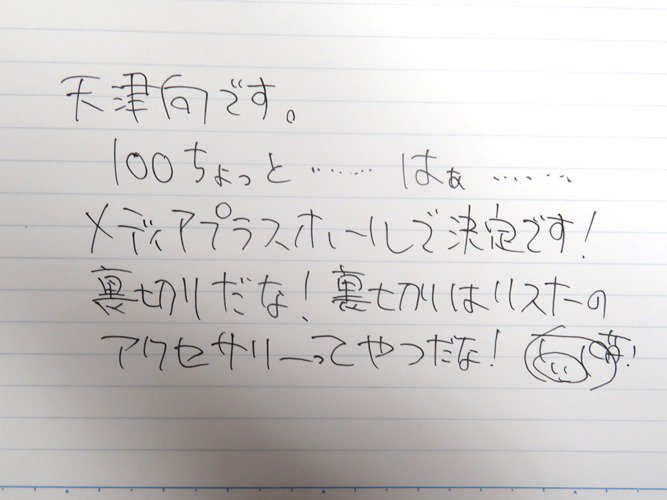 天津向です。
100ちょっと…… はぁ……
メディアプラスホールで決定です！
裏切りだな！裏切りはリスナーの
アクセサリーってやつだな！